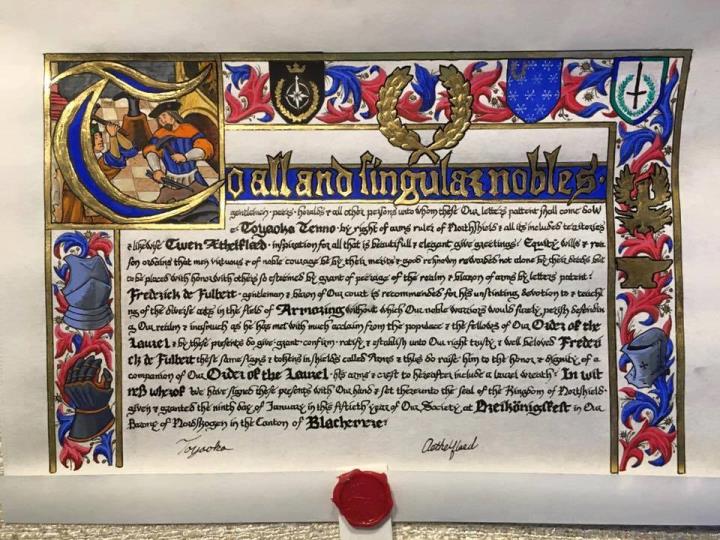 To all and singular nobles·
gentlemen · peers · heralds & all other persons unto whom these Our letters patent shall come do W
e Toyaoka Tenno · by right of arms ruler of Northshield & all its included territories
& likewise Cwen Æthelflaed · inspiration for all that is beautiful & elegant give greetings! Equity wills & rea
son ordains that men virtuous & of noble courage be by their merits & good renown rewarded not alone by their deeds but
to be placed with honor with others so esteemed by grant of peerage of the realm & blazon of arms by letters patent!
Fredrick de Fulbert · gentleman & baron of Our court is recommended for his unstinting devotion to & teachi
ng of the diverse arts in the field of Armoring without which Our noble warriors would surely perish defendin
g Our realm & inasmuch as he has met with much acclaim from the populace & the fellows of Our Order of the
Laurel & by these presents do give · grant · confirm · ratify & establish unto Our right trusty & well beloved Frederi
ck de Fulbert these same signs & tokens in shields called Arms & thus do raise him to the honor & dignity of a
companion of Our Order of the Laurel · his arms & crest to hereafter include a laurel wreath! In wit
neß wherof We have signed these presents with Our hand & set thereunto the seal of the Kingdom of Northshield ·
given & granted the ninth day of January in this fiftieth year of Our Society at Dreikönigsfest in Our
Barony of Nordskogen in the Canton of Blachemre!
Toyaoka Aethelflaed